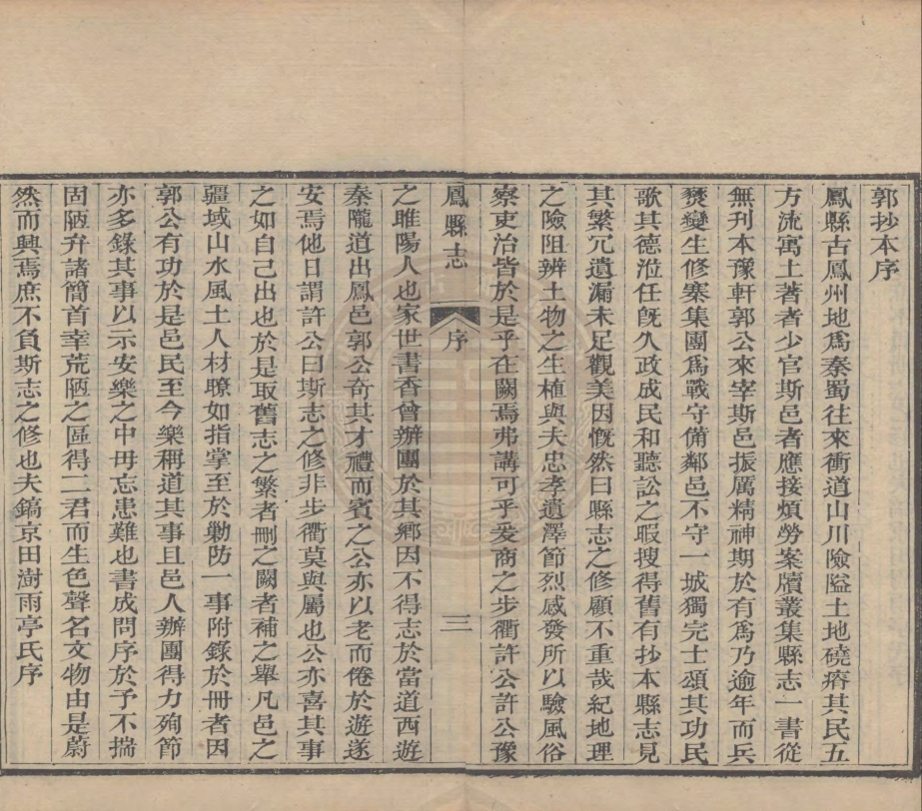 郭抄本序
鳳縣古鳳州地爲秦蜀往來衝道山川險隘土地磽瘠其民五
方流寓土著者少官斯邑者應接煩勞案牘叢集縣志一書從
無刊本豫軒郭公來宰斯邑振厲精神期於有爲乃逾年而兵
燹變生修寨集團爲戰守備鄰邑不守一城獨完士頌其功民
歌其德涖任旣久政成民和聽訟之暇搜得舊有抄本縣志見
其繁冗遺漏未足觀美因慨然曰縣志之修顧不重哉紀地理
之險阻辨土物之生植與夫忠孝遺澤節烈感發所以驗風俗
察吏治皆於是乎在闕焉弗講可乎爰商之步衢許公許公豫
鳳縣志 序 三
之睢陽人也家世書香曾辦團於其鄉因不得志於當道西遊
秦隴道出鳳邑郭公奇其才禮而賓之公亦以老而倦於遊遂
安焉他日謂許公曰斯志之修非步衢莫與屬也公亦喜其事
之如自己出也於是取舊志之繁者刪之闕者補之舉凡邑之
疆域山水風土人材瞭如指掌至於勦防一事附錄於冊者因
郭公有功於是邑民至今樂稱道其事且邑人辦團得力殉節
亦多錄其事以示安樂之中毋忘患難也書成問序於予不揣
固陋弁諸簡首幸荒陋之區得二君而生色聲名文物由是蔚
然而興焉庶不負斯志之修也夫鎬京田澍雨亭氏序